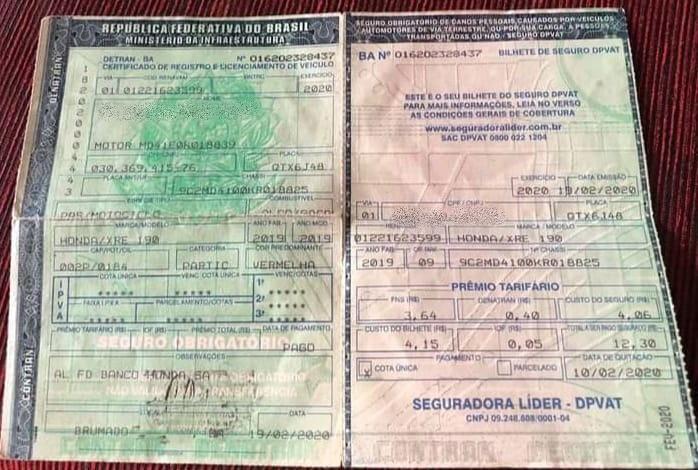 REPÚBLICA FEDERATIVA DO BRASIL
MINISTÉRIO DA INFRAESTRUTURA
DENATRAN
DETRAN - BA Nº 016202328437
CERTIFICADO DE REGISTRO E LICENCIAMENTO DE VEÍCULO
VIA CÓD. RENAVAM RNTRC EXERCÍCIO
01 01221623599 2020
NOME
MOTOR MD41E0K018839
PLACA
030.369.415-76 QTX6J48
PLACA ANT/UF CHASSI
9C2MD4100KR018825
ESPÉCIE TIPO COMBUSTÍVEL
MARCA/MODELO ANO FAB ANO MOD
HONDA/XRE 190 2019 2019
CAP/POT/CIL CATEGORIA COR PREDOMINANTE
002P/0184 PARTIC VERMELHA
IPVA
COTA ÚNICA VENC. COTA ÚNICA VENC/COTAS
***** ***** 1ª *****
FAIXA I.P.V.A PARCELAMENTO/COTAS 2ª *****
***** ***** 3ª *****
PRÊMIO TARIFÁRIO (R$) IOF (R$) PRÊMIO TOTAL (R$) DATA DE PAGAMENTO
SEGURO OBRIGATÓRIO PAGO
OBSERVAÇÕES
AL FD BANCO HONDA SA
DATA
BRUMADO BA 19/02/2020
CONTRAN
SEGURO OBRIGATÓRIO DE DANOS PESSOAIS CAUSADOS POR VEÍCULOS
AUTOMOTORES DE VIA TERRESTRE, OU POR SUA CARGA, A PESSOAS
TRANSPORTADAS OU NÃO - SEGURO DPVAT
BA Nº 016202328437 BILHETE DE SEGURO DPVAT
ESTE É O SEU BILHETE DO SEGURO DPVAT
PARA MAIS INFORMAÇÕES, LEIA NO VERSO
AS CONDIÇÕES GERAIS DE COBERTURA
www.seguradoralider.com.br
SAC DPVAT 0800 022 1204
EXERCÍCIO DATA EMISSÃO
2020 19/02/2020
VIA CPF / CNPJ PLACA
01 QTX6J48
MARCA / MODELO
01221623599 HONDA/XRE 190
ANO FAB CHASSI
2019 09 9C2MD4100KR018825
PRÊMIO TARIFÁRIO
FNS (R$) DENATRAN (R$) CUSTO DO SEGURO (R$)
3,64 0,40 4,06
CUSTO DO BILHETE (R$) IOF (R$) TOTAL A SER PAGO SEGURADO (R$)
4,15 0,05 12,30
PAGAMENTO DATA DE QUITAÇÃO
X COTA ÚNICA PARCELADO 10/02/2020
SEGURADORA LÍDER - DPVAT
CNPJ 09.248.608/0001-04
FEV-2020